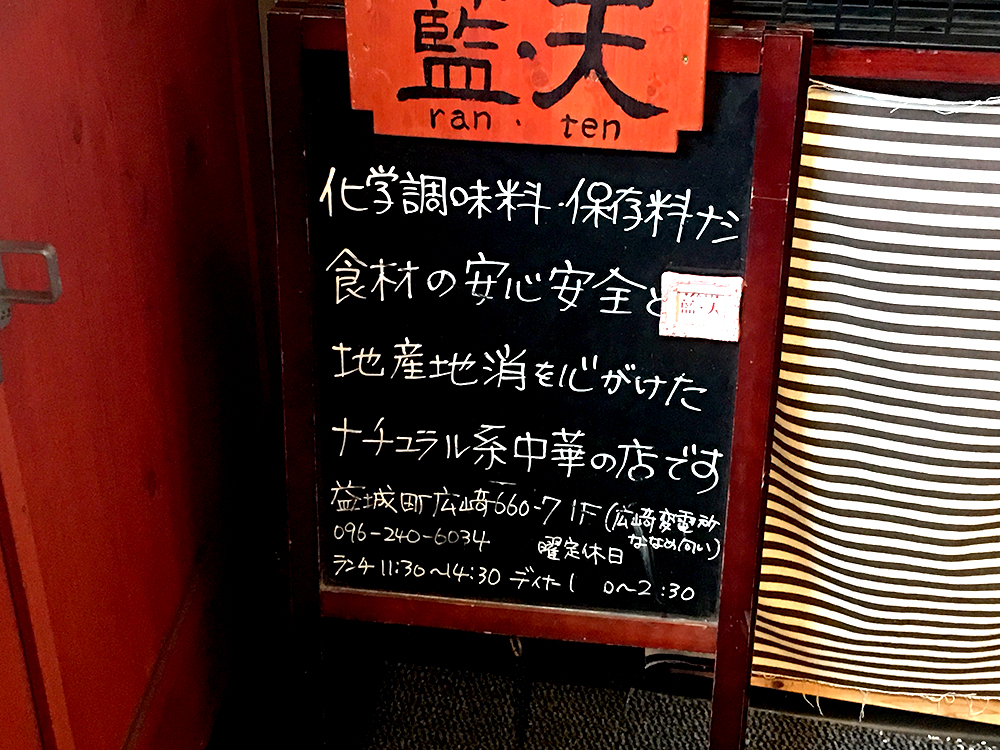 藍・天
ran・ten
化学調味料・保存料ナシ
食材の安心安全と
藍・天
地産地消を心がけた
ナチュラル系中華の店です
益城町広崎660-7 1F(広崎変電所
ななめ向い)
096-240-6034
曜定休日
ランチ11:30〜14:30 ディナー